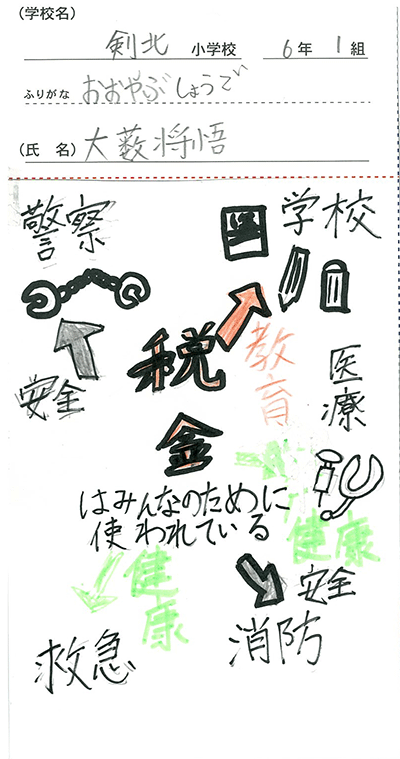 (学校名)
剣北 小学校 6年 1組
ふりがな おおやぶしょうご
(氏 名) 大薮将悟
警察
学校
税金
教育
安全
医療
はみんなのために
使われている
健康
健康
安全
救急
消防